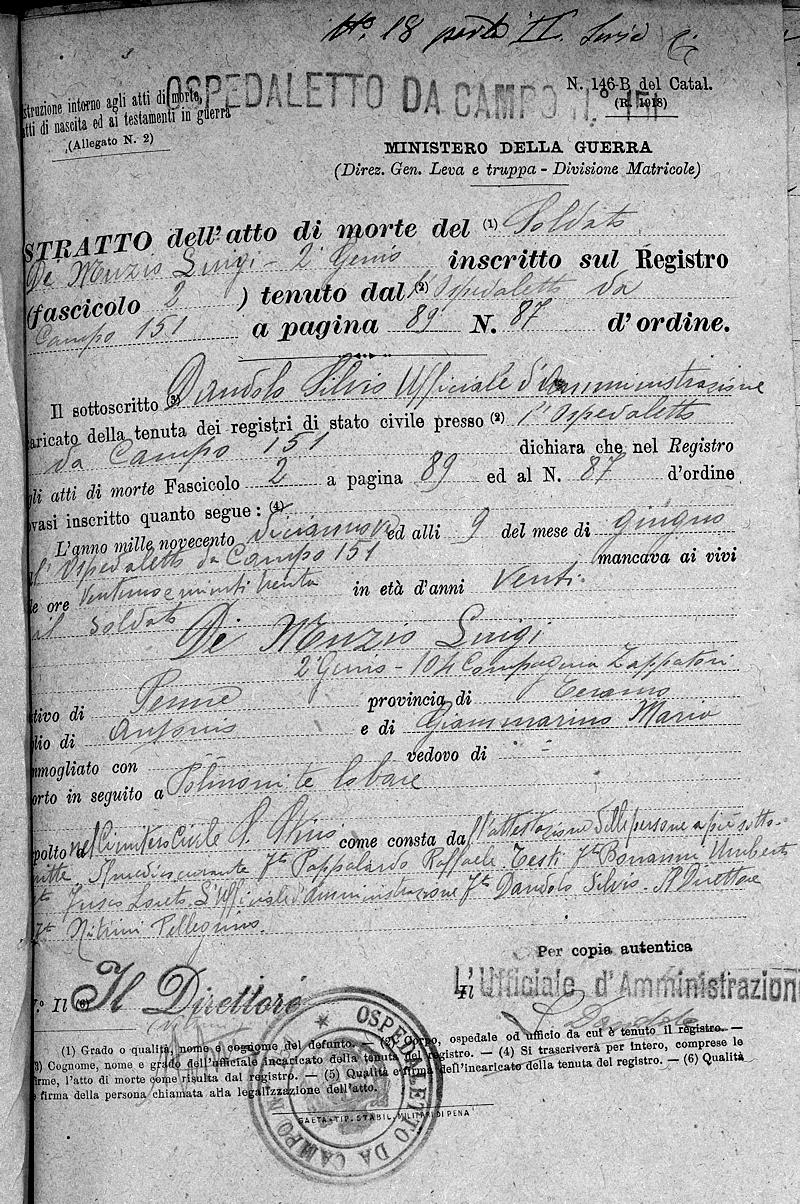 N.º 18 parte II. Serie C
struzione intorno agli atti di morte,
atti di nascita ed ai testamenti in guerra
(Allegato N. 2)
OSPEDALETTO DA CAMPO N.º 151
N. 146-B del Catal.
(R. 1918)
MINISTERO DELLA GUERRA
(Direz. Gen. Leva e truppa - Divisione Matricole)
STRATTO dell'atto di morte del (1) Soldato
De Muzio Luigi - 2º Genio inscritto sul Registro
(fascicolo 2 ) tenuto dal (2) l'Ospedaletto da
Campo 151 a pagina 89 N. 87 d'ordine.
Il sottoscritto (3) Dandolo Silvio Ufficiale d'Amministrazione
caricato della tenuta dei registri di stato civile presso (2) l'Ospedaletto
da Campo 151 dichiara che nel Registro
gli atti di morte Fascicolo 2 a pagina 89 ed al N. 87 d'ordine
ovasi inscritto quanto segue: (4)
L'anno mille novecento diciannove ed alli 9 del mese di giugno
l'Ospedaletto da Campo 151 mancava ai vivi
le ore ventuno e minuti trenta in età d'anni Venti.
il soldato
De Muzio Luigi
2º Genio - 104 Compagnia Zappatori
tivo di Penne provincia di Teramo
glio di Antonio e di Giammarino Maria
mmogliato con - vedovo di -
orto in seguito a Polmonite lobare
polto a nel Cimitero Civile S. come consta da ll'attestazione delle persone a piè sotto-
critte medico curante Fto Pappalardo Raffaele Testi Fto Bonanni Umberto
Fto Fusco Loreto. L'Ufficiale d'amministrazione Fto Dandolo Silvio. Il Direttore
Fto Pellegrino.
Per copia autentica
V.º Il (6) Il Direttore
Il L'Ufficiale d'Amministrazione
S. Dandolo
(1) Grado o qualità, nome e cognome del defunto. — (2) Corpo, ospedale od ufficio da cui è tenuto il registro. —
(3) Cognome, nome e grado dell'ufficiale incaricato della tenuta del registro. — (4) Si trascriverà per intero, comprese le
firme, l'atto di morte come risulta dal registro. — (5) Qualità e firma dell'incaricato della tenuta del registro. — (6) Qualità
e firma della persona chiamata alla legalizzazione dell'atto.
OSPEDALETTO DA CAMPO N
GAETA - TIP. STABIL. MILITARI DI PENA